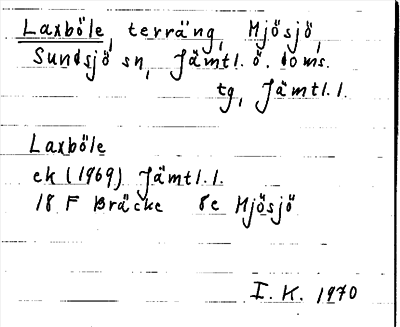 Laxböle, terräng, Mjösjö,
Sundsjö sn, Jämtl. ö. doms.
tg, Jämtl. l.
Laxböle
ek (1969) Jämtl. l.
18 F Bräcke 8e Mjösjö
I. K. 1970